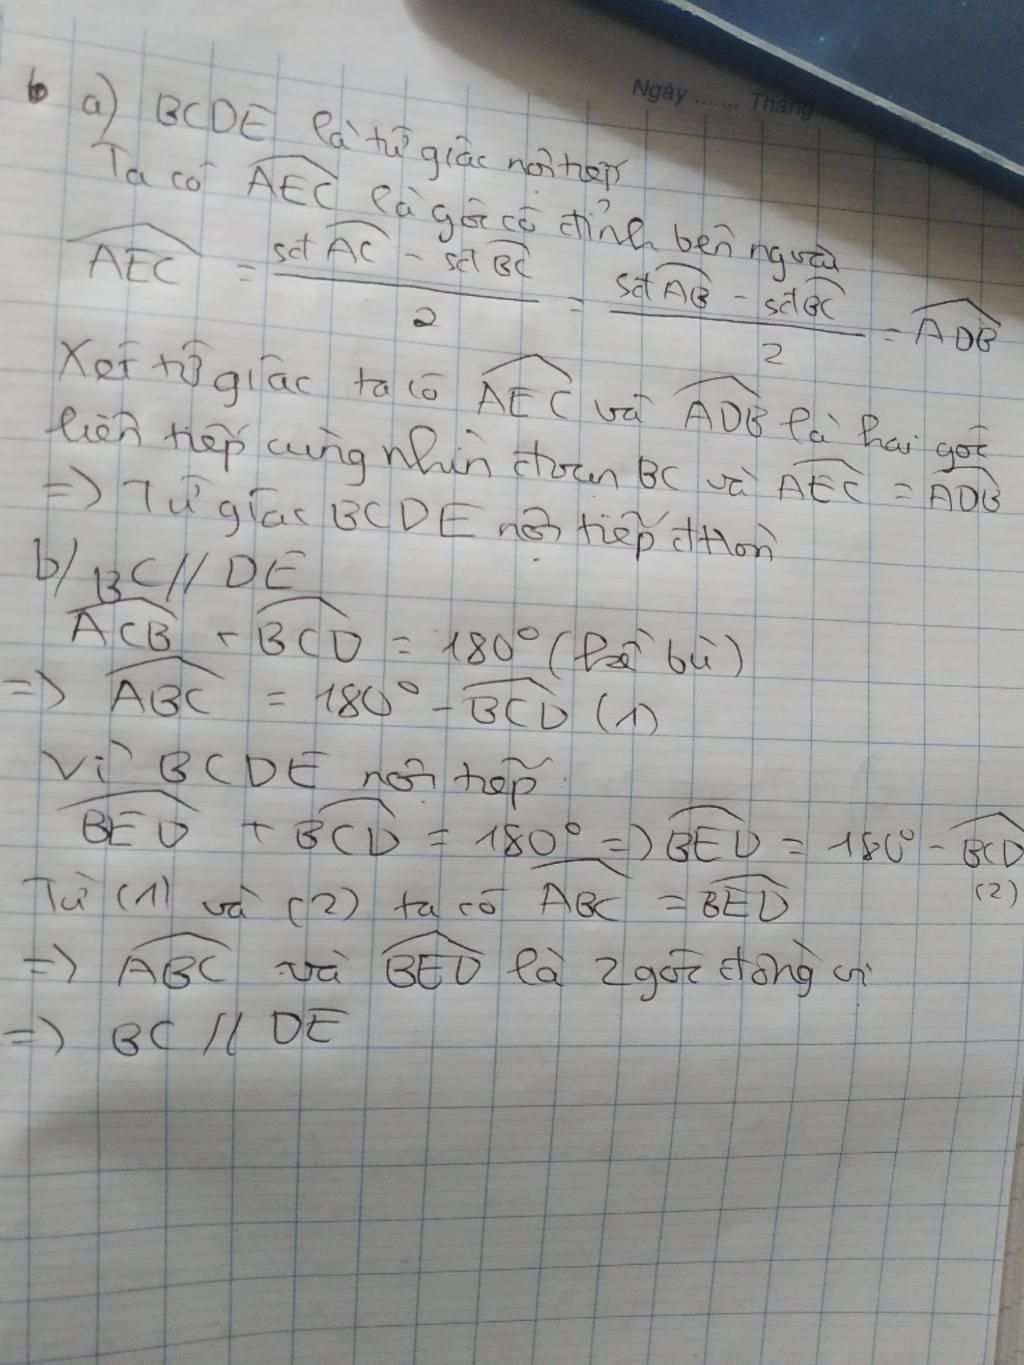 Ngày ....... Tháng
b a) BCDE là tứ giác nội tiếp
Ta có AEC là góc có đỉnh bên ngoài
AEC = sđAC - sđBC / 2 = sđAB - sđBC / 2 = ADB
Xét tứ giác ta có AEC và ADB là hai góc
liên tiếp cùng nhìn đoạn BC và AEC = ADB
=> Tứ giác BCDE nội tiếp đtròn
b/ BC // DE
ACB + BCD = 180° (kề bù)
=> ABC = 180° - BCD (1)
Vì BCDE nội tiếp
BED + BCD = 180° => BED = 180° - BCD
(2)
Từ (1) và (2) ta có ABC = BED
=> ABC và BED là 2 góc đồng vị
=> BC // DE